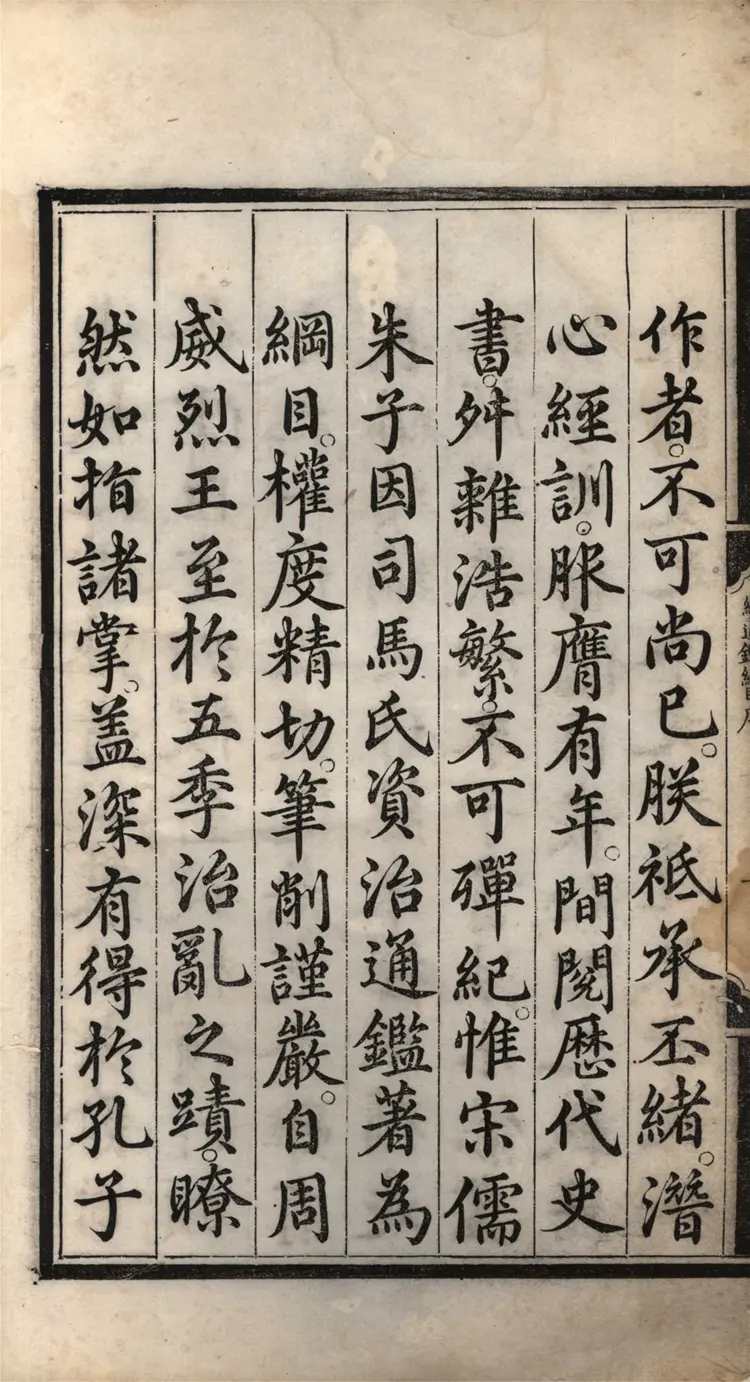 作者。不可尚已。朕祗承丕緒。潛
心經訓。服膺有年。間閱歷代史
書。舛雜浩繁。不可殫紀。惟宋儒
朱子因司馬氏資治通鑑著為
綱目。權度精切。筆削謹嚴。自周
威烈王至於五季治亂之蹟。瞭
然如指諸掌。蓋深有得於孔子